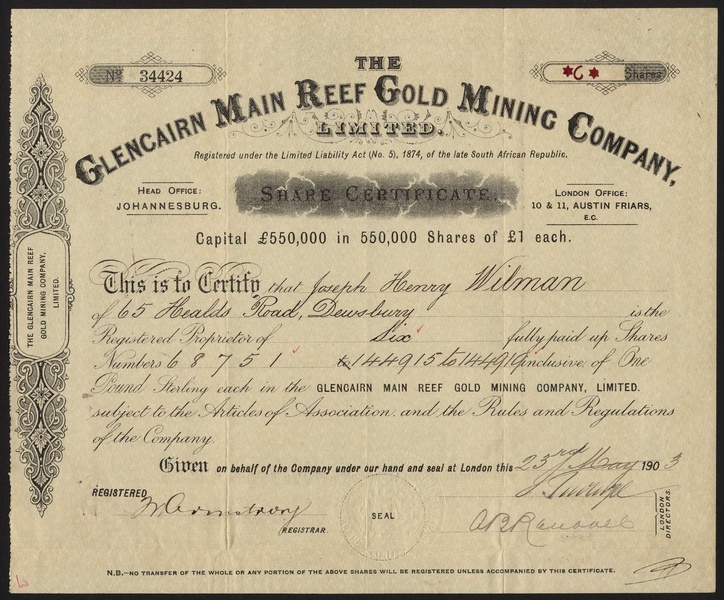 THE
No 34424
*6* Shares
GLENCAIRN MAIN REEF GOLD MINING COMPANY,
LIMITED.
Registered under the Limited Liability Act (No. 5), 1874, of the late South African Republic.
HEAD OFFICE:
JOHANNESBURG.
SHARE CERTIFICATE.
LONDON OFFICE:
10 & 11, AUSTIN FRIARS,
E.C.
Capital £550,000 in 550,000 Shares of £1 each.
THE GLENCAIRN MAIN REEF
GOLD MINING COMPANY,
LIMITED.
This is to Certify that Joseph Henry Wilman
of 65 Healds Road, Dewsbury is the
Registered Proprietor of Six fully paid up Shares
Numbers 68751 to 144915 to 144919 inclusive of One
Pound Sterling each in the GLENCAIRN MAIN REEF GOLD MINING COMPANY, LIMITED.
subject to the Articles of Association and the Rules and Regulations
of the Company.
Given on behalf of the Company under our hand and seal at London this 23rd May 1903
REGISTERED
W Armstrong
REGISTRAR.
SEAL
LONDON
DIRECTORS.
N.B.—NO TRANSFER OF THE WHOLE OR ANY PORTION OF THE ABOVE SHARES WILL BE REGISTERED UNLESS ACCOMPANIED BY THIS CERTIFICATE.